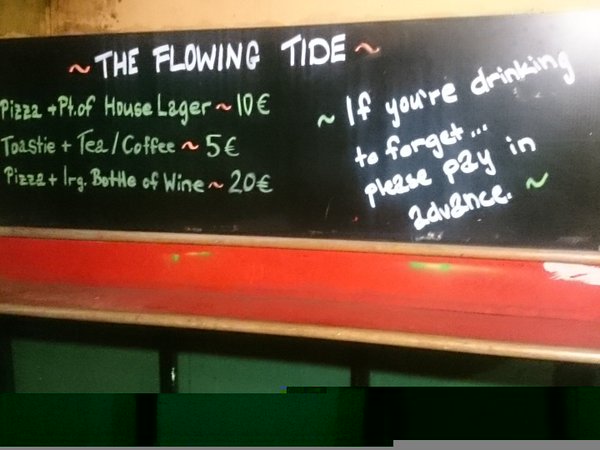 ~ THE FLOWING TIDE ~
Pizza + Pt. of House Lager ~ 10€
Toastie + Tea / Coffee ~ 5€
Pizza + lrg. Bottle of Wine ~ 20€
~ If you're drinking
to forget...
please pay in
advance. ~